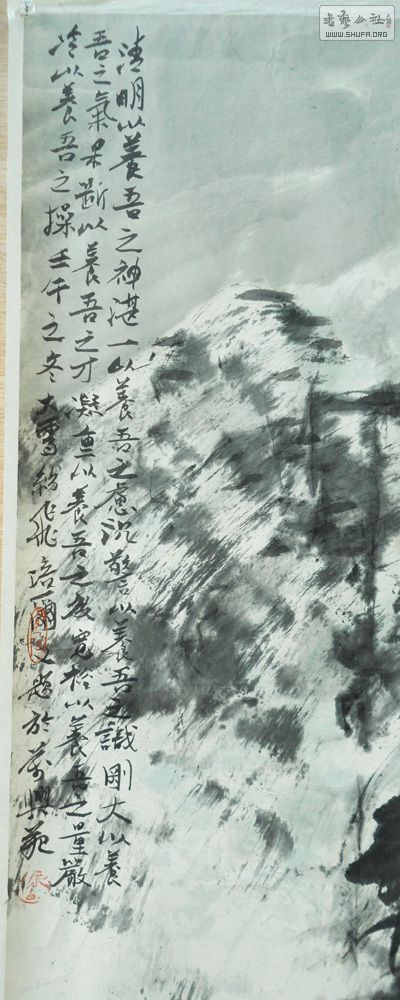 清明以養吾之神湛一以養吾之慮沉警以養吾之識剛大以養
吾之氣果斷以養吾之才凝重以養吾之度寬裕以養吾之量嚴
冷以養吾之操壬午之冬大雪紛飛培爾又題於萬興苑
書藝公社
WWW.SHUFA.ORG